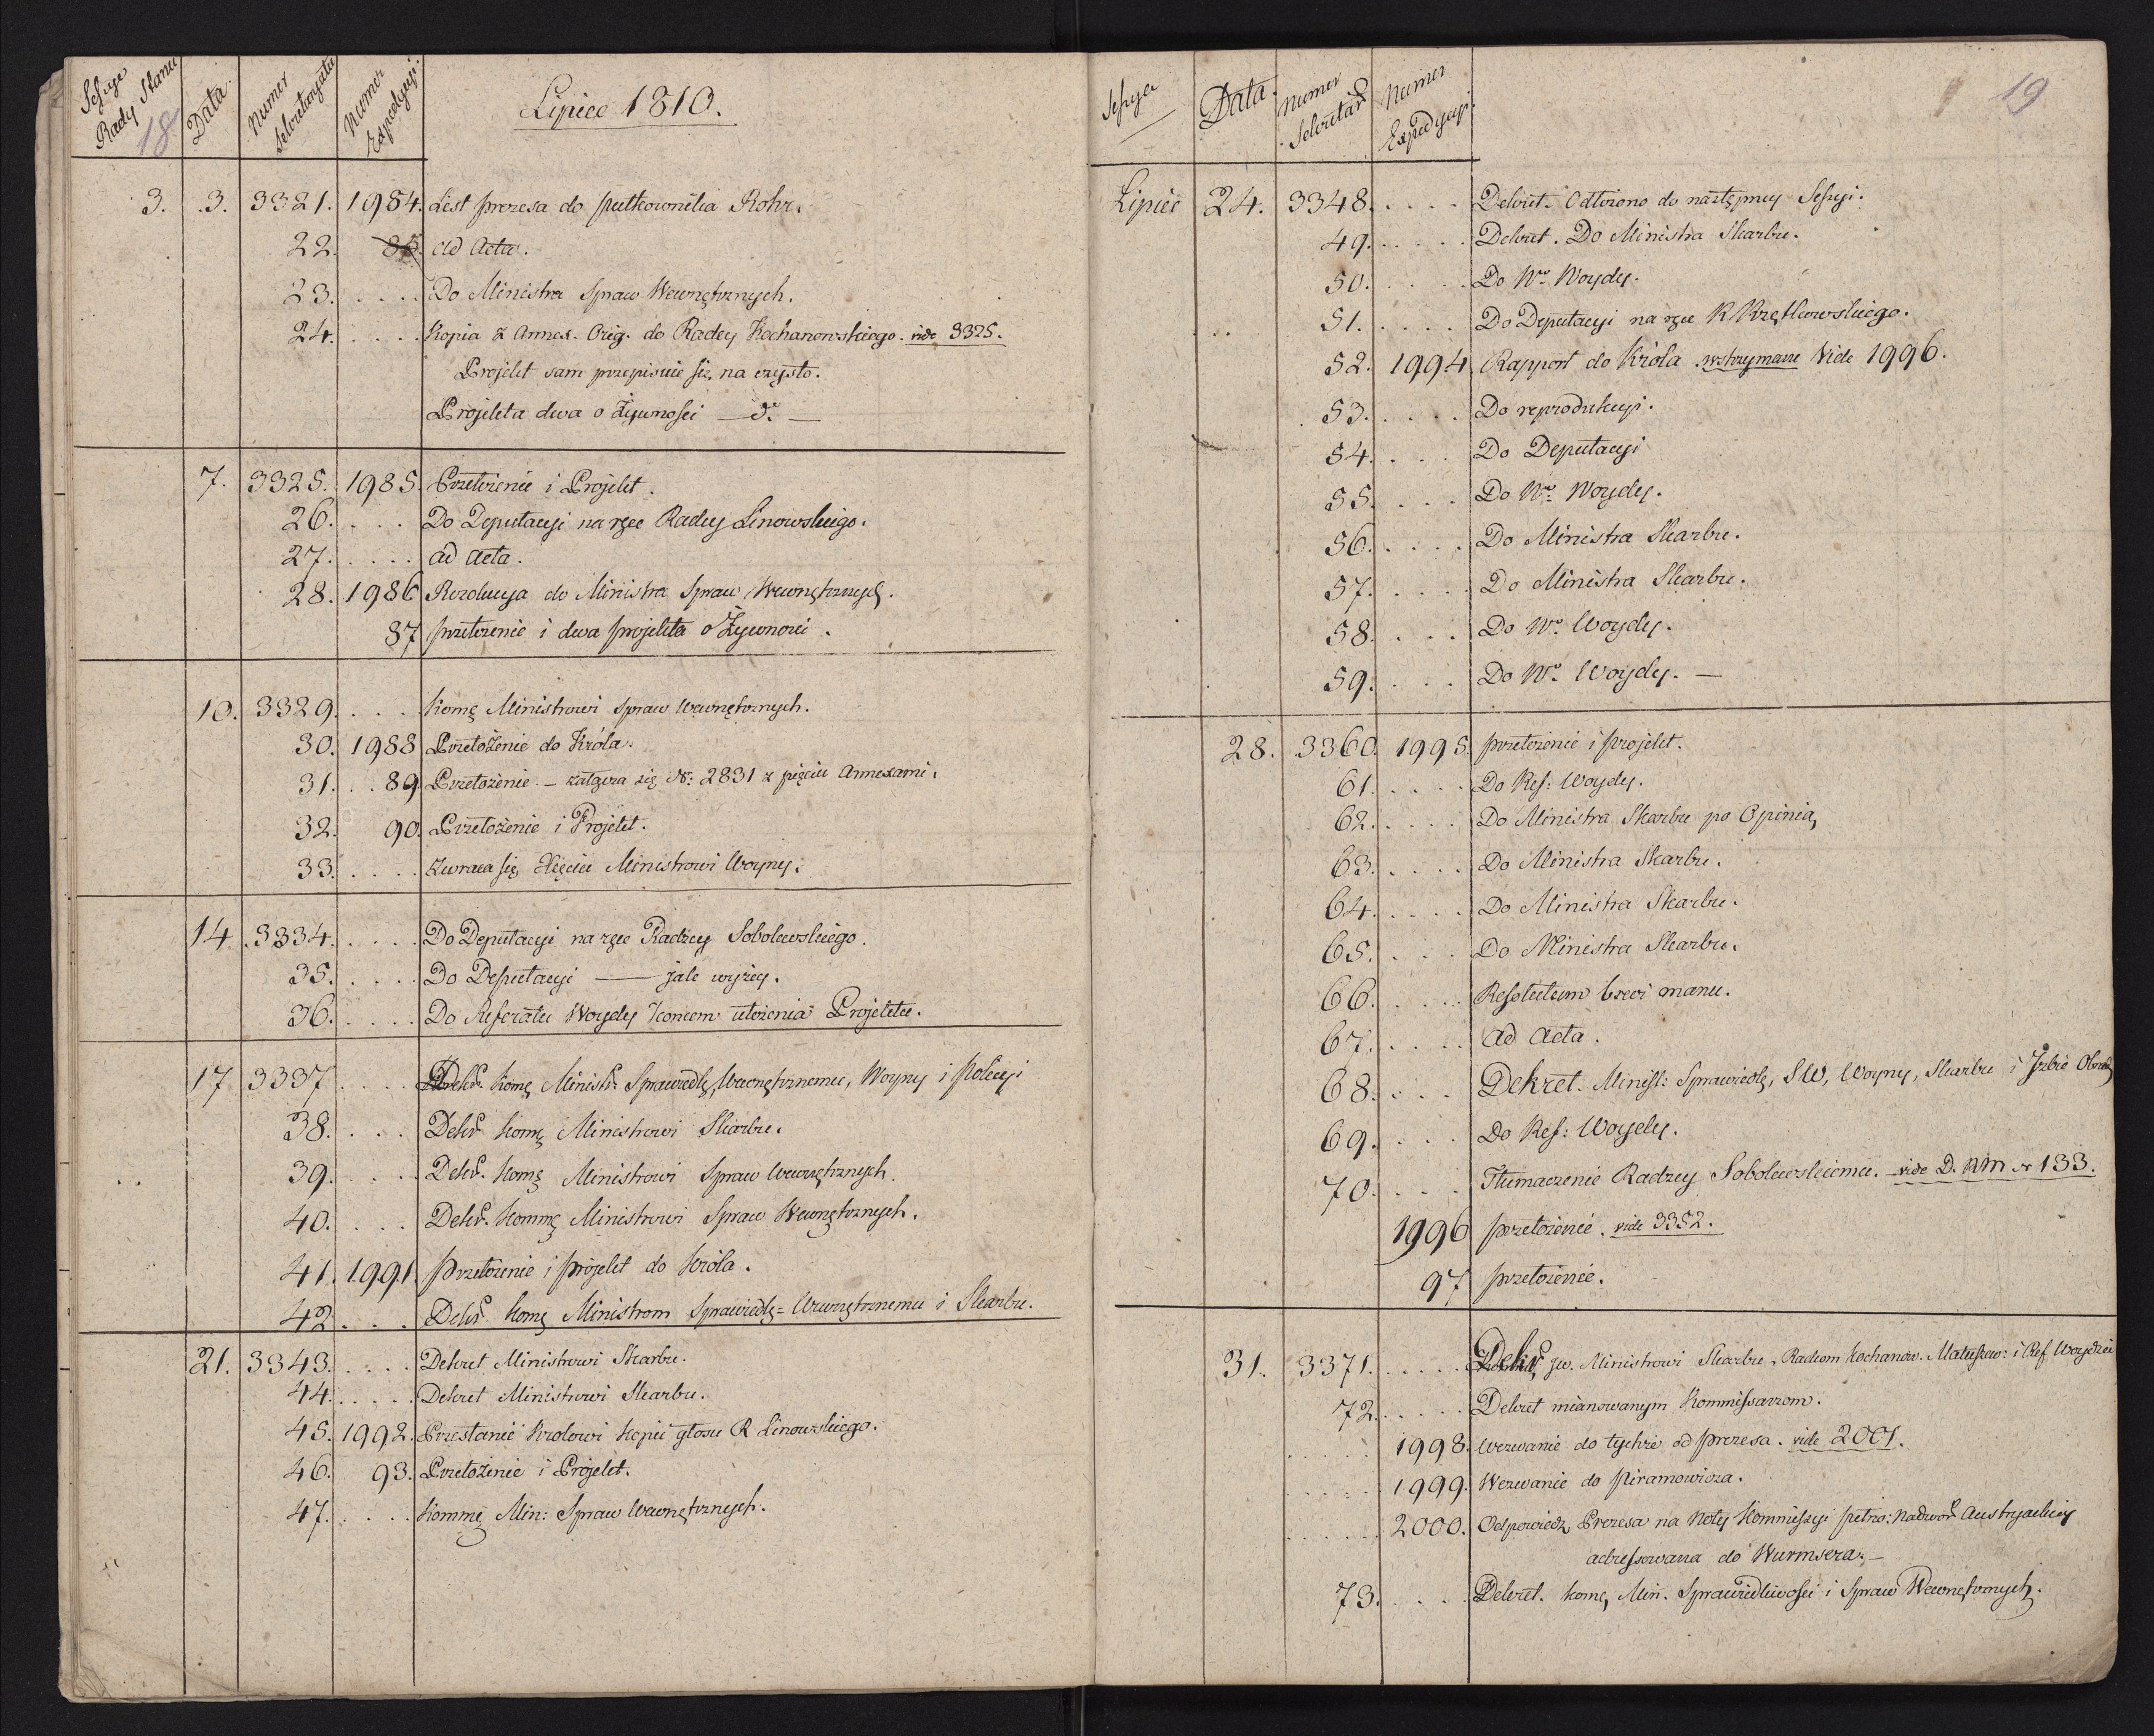 Sessye Rady Stanu
18
Data.
Numer Sekretaryatu
Numer Expedycyi.
Lipiec 1810.
3. 3. 3321. 1984. List prezesa do pułkownika Rohr.
22. 85. ad Acta.
23. . . . . Do Ministra Spraw Wewnętrznych.
24. . . . . Kopia z Annex. Orig. do Radcy Kochanowskiego. vide 3325.
Projekt sam przepisuie się na czysto.
Projekta dwa o Żywności — do —
7. 3325. 1985. Przełożenie i Projekt.
26. . . . Do Deputacyi na ręce Radcy Linowskiego.
27. . . . . ad acta.
28. 1986 Rezolucya do Ministra Spraw Wewnętrznych.
87 przełożenie i dwa projekta o Żywności.
10. 3329. . . . Komę Ministrowi Spraw Wewnętrznych.
30. 1988 Przełożenie do Króla.
31. . . 89. Przełożenie. – załącza się Nr: 2831 z pięciu Annexami.
32. 90. Przełożenie i Projekt.
33. . . . . zwraca się Xięciu Ministrowi Woyny.
14. 3334. . . . . Do Deputacyi na ręce Radzcy Sobolewskiego.
35. . . . . Do Deputacyi — jak wyżey.
36. . . . . Do Referatu Woydy końcem ułożenia Projektu.
17 3337 . . . . Dekr. Komę Ministr. Sprawiedlę, Wewnętrznemu, Woyny i Policyi
38. . . . Dekr. Komę Ministrowi Skarbu.
39. . . . Dekr. Komę Ministrowi Spraw Wewnętrznych.
40. . . . Dekr. Kommę Ministrowi Spraw Wewnętrznych.
41. 1991. Przełożenie i projekt do Króla.
42. . . . Dekr. Komę Ministrom Sprawiedlę = Wewnętrznemu i Skarbu.
21. 3343. . . . . Dekret Ministrowi Skarbu.
44. . . . . Dekret Ministrowi Skarbu.
45. 1992. Przesłanie Krolowi kopii głosu R Linowskiego.
46. 93. Przełożenie i Projekt.
47. . . . . Kommę Min: Spraw Wewnętrznych.
Sessya
Data.
Numer Sekretar
Numer Expedycyi.
19
Lipiec 24. 3348. . . . . Dekret. Odłożono do następney Sessyi.
49. . . . . Dekret. Do Ministra Skarbu.
50. . . . . Do Wo. Woydy.
51. . . . . Do Deputacyi na ręce R Węgleńskiego.
52. 1994 Rapport do Króla. wstrzymane Vide 1996.
53. . . . . Do reprodukcyi.
54. . . . Do Deputacyi
55. . . . Do Wo. Woydy.
56. . . . . Do Ministra Skarbu.
57. . . . . Do Ministra Skarbu.
58. . . . Do Wo. Woydy.
59. . . . Do Wo. Woydy. —
28. 3360. 1995. przełożenie i projekt.
61. . . . . Do Ref: Woydy.
62. . . . . Do Ministra Skarbu po Opinią
63. . . . . Do Ministra Skarbu.
64. . . . . Do Ministra Skarbu.
65. . . . Do Ministra Skarbu.
66. . . . . Resolutum brevi manu.
67. . . . . ad acta.
68. . . . Dekret. Minist: Sprawiedlę, SW, Woyny, Skarbu i Izbie Obrach
69. . . . Do Ref: Woydy.
70. . . . Tłumaczenie Radzcy Sobolewskiemu. – vide D. RM nr 133.
1996 przełożenie. vide 3352.
97 przełożenie.
31. 3371. . . . . Dekr. JW. Ministrowi Skarbu, Radcom Kochanow. Matuszew: i Ref. Woydzie
72. . . . . Dekret mianowanym Kommissarzom.
1998. Wezwanie do tychże od prezesa. vide 2001.
. . . . 1999. Wezwanie do Piramowicza.
. . . . . 2000. Odpowiedź Prezesa na Noty Kommissyi pełno: Nadwor Austryackiey
adressowana do Wurmsera. –
73. . . . . Dekret. Komę, Min. Sprawiedliwości i Spraw Wewnętrznych.